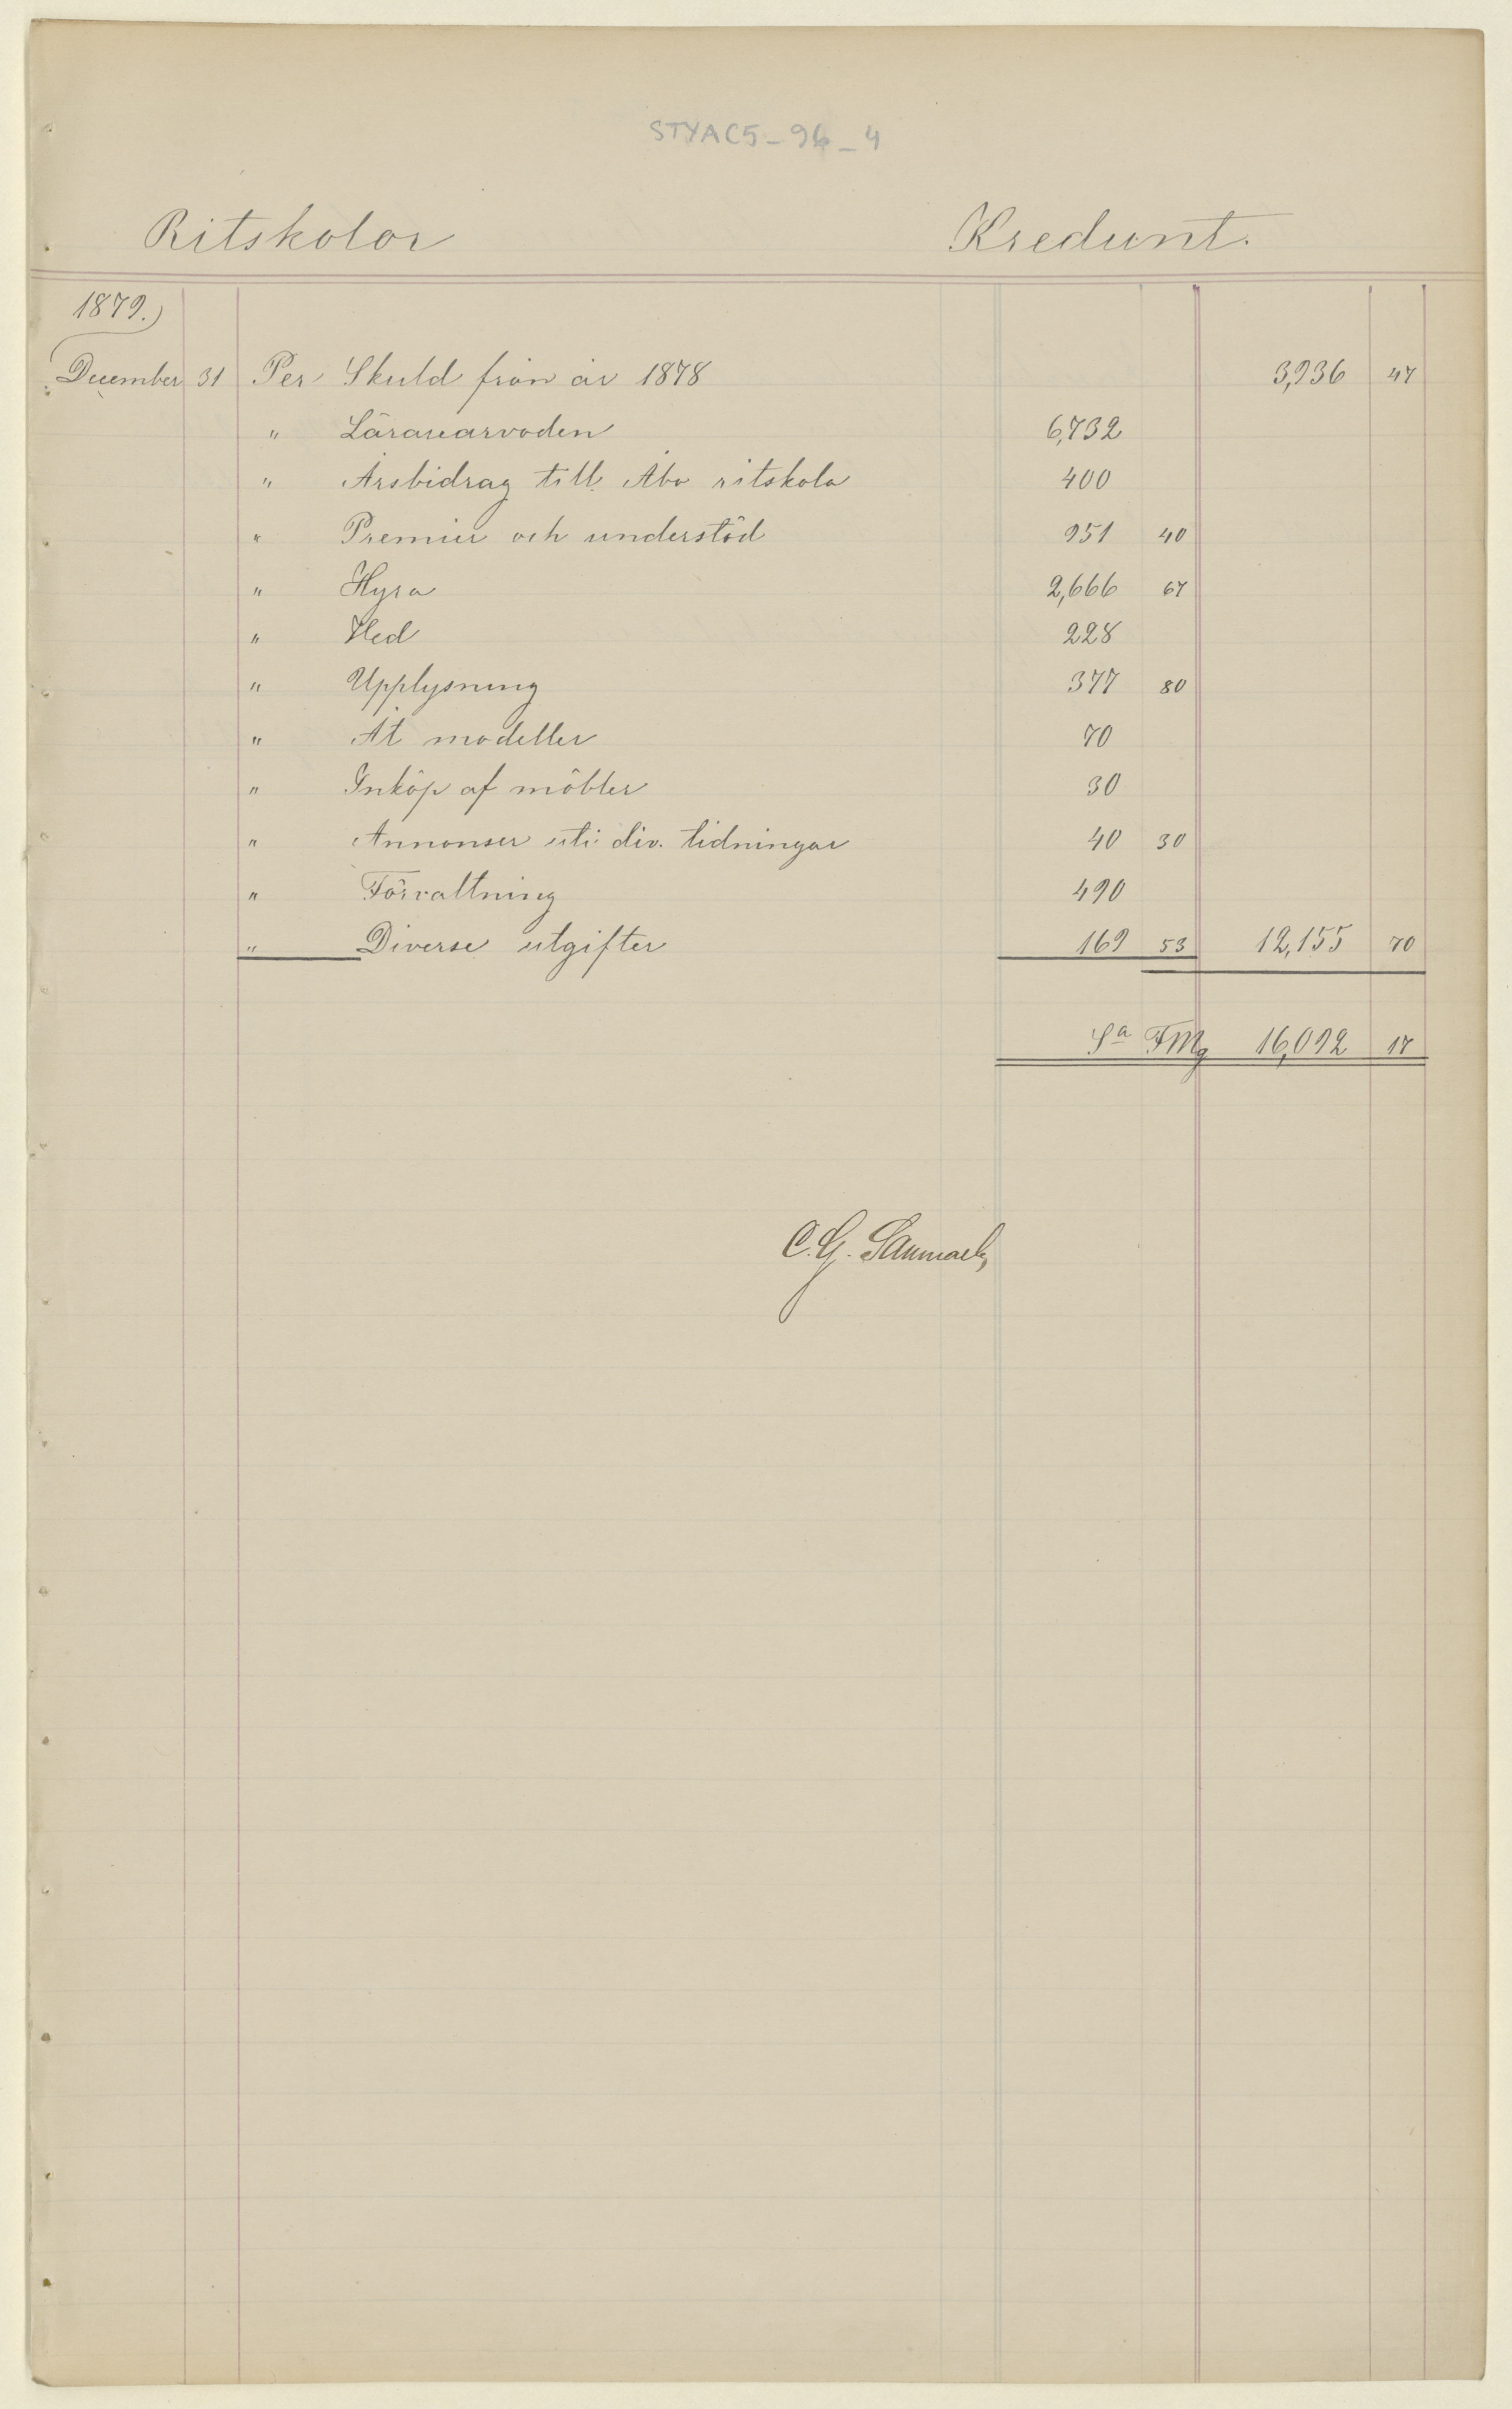 STYAC5_96_4
Ritskolor Kredunt.
1879.
December 31 Per Skuld från år 1878 3,936 47
" Lärarearvoden 6,732
" Årsbidrag till Åbo ritskola 400
" Premier och understöd 951 40
" Hyra 2,666 67
" Ved 228
" Upplysning 377 80
" Åt modeller 70
" Inköp af möbler 30
" Annonser uti div. tidningar 40 30
" Förvaltning 490
" Diverse utgifter 169 53 12,155 70
Sa FMg 16,092 17
C. G. Sanmark